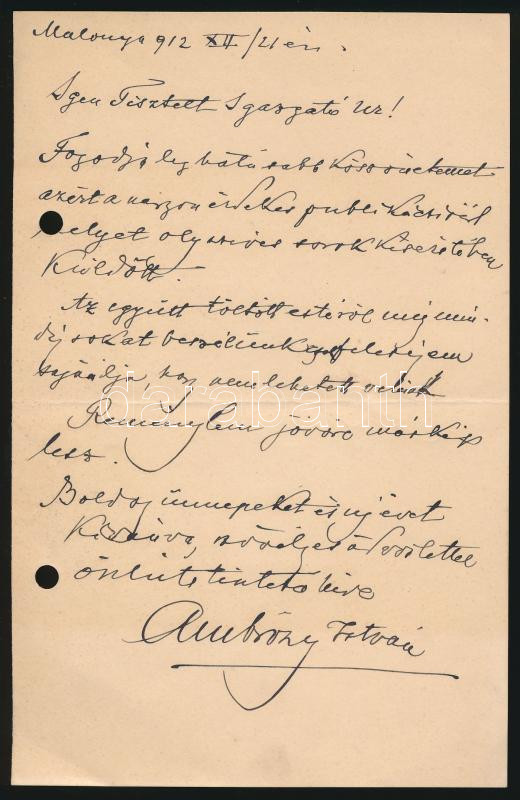 Malonya 912 XII/21 én.
Igen Tisztelt Igazgató Úr!
Fogadja leghálásabb köszönetemet
azért a nagyon érdekes publikációért
melyet oly szives sorok kiséretében
küldött.
Az együtt töltött estéről még min-
dig sokat beszélünk feleségem
sajnálja, hogy nem lehetett velünk
Remènylem jövőre máskép
lesz.
Boldog ünnepeket és új évet
Kivánva, szivélyes üdvözlettel
önt tisztelő hive
Ambrózy István
darabanth